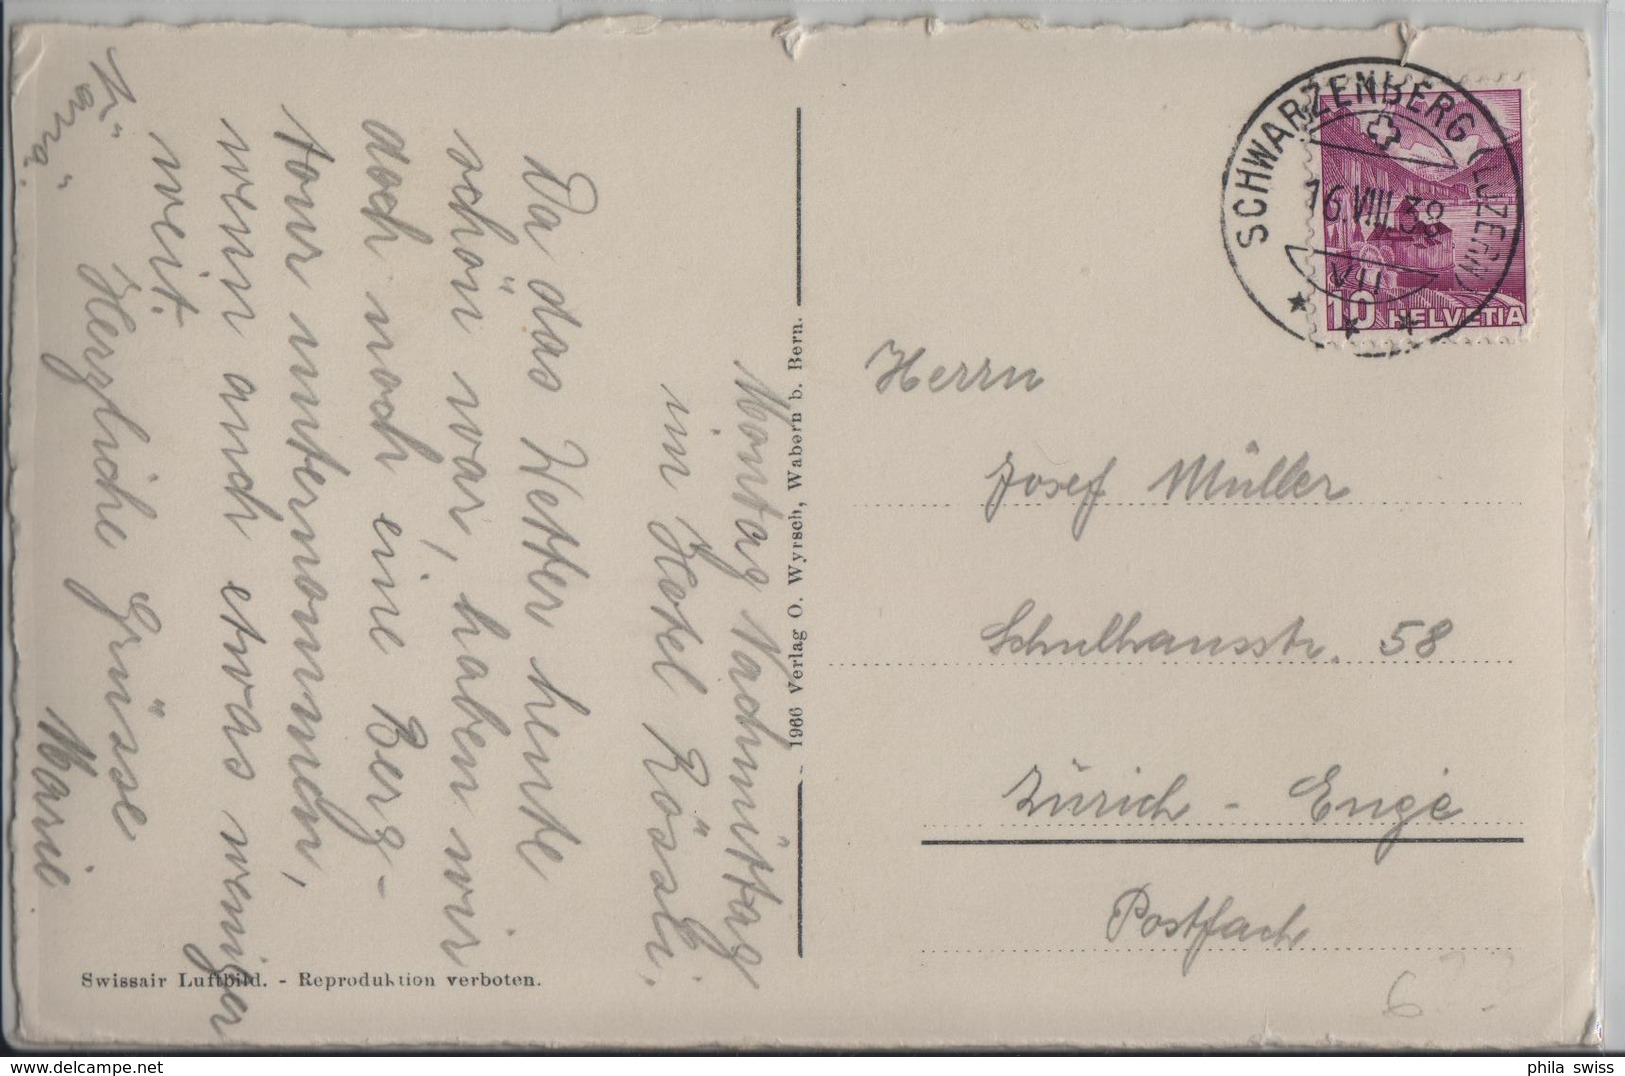 Montag Nachmittag
im Hotel Rössli.
Da das Wetter heute
schön war, haben wir
doch noch eine Berg-
tour unternommen,
wenn auch etwas weniger
weit.
Herzliche Grüsse
Marie
1966 Verlag O. Wyrsch, Wabern b. Bern.
Swissair Luftbild. - Reproduktion verboten.
SCHWARZENBERG (LUZERN)
16.VIII.38
VII
10 HELVETIA
Herrn
Josef Müller
Schulhausstr. 58
Zürich - Enge
Postfach
phila swiss